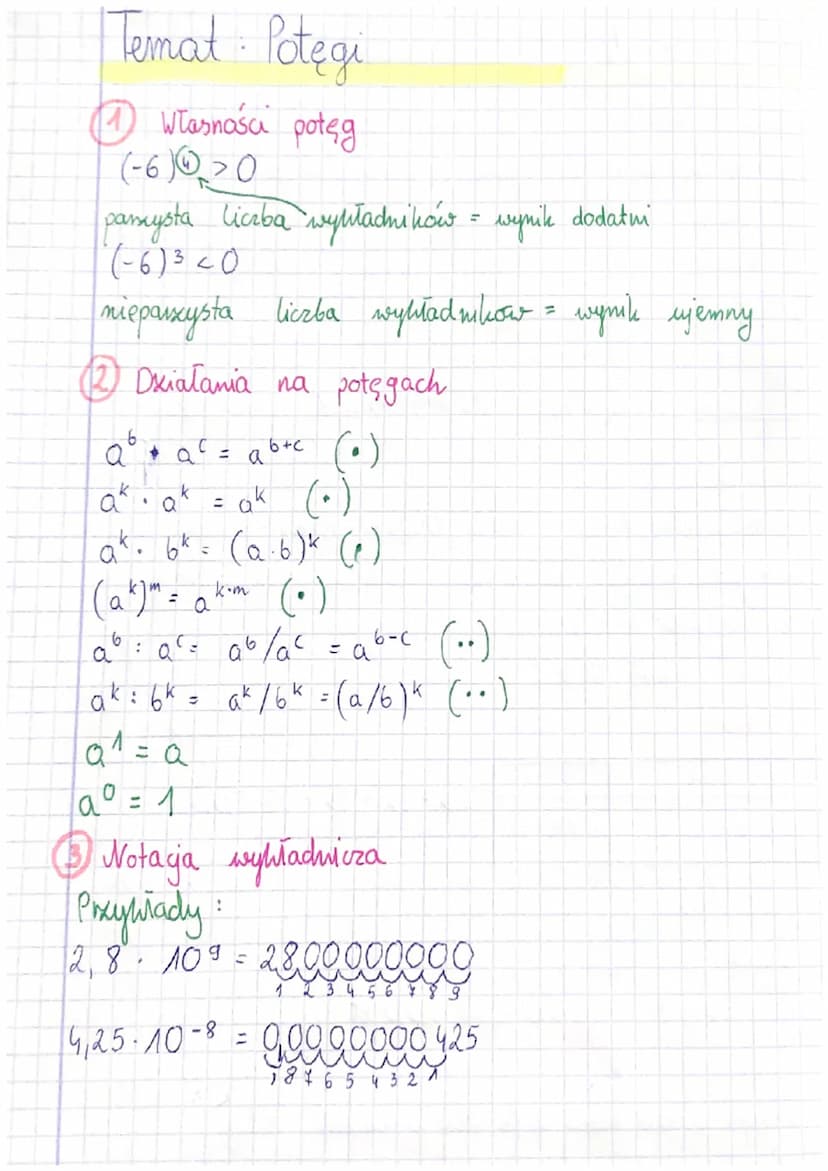 Temat: Potęgi
1 Własności potęg
(-6)⁴ > 0
parzysta liczba wykładników = wynik dodatni
(-6)³ < 0
nieparzysta liczba wykładników = wynik ujemny
2 Działania na potęgach
aᵇ · aᶜ = aᵇ⁺ᶜ (·)
aᵏ · aᵏ = aᵏ (·)
aᵏ · bᵏ = (a·b)ᵏ (·)
(aᵏ)ᵐ = aᵏ˙ᵐ (·)
aᵇ : aᶜ = aᵇ/aᶜ = aᵇ⁻ᶜ (··)
aᵏ : bᵏ = aᵏ/bᵏ = (a/b)ᵏ (··)
a¹ = a
a⁰ = 1
3 Notacja wykładnicza
Przykłady:
2,8 · 10⁹ = 2800000000
1 2 3 4 5 6 7 8 9
4,25 · 10⁻⁸ = 0,0000000425
, 8 7 6 5 4 3 2 1